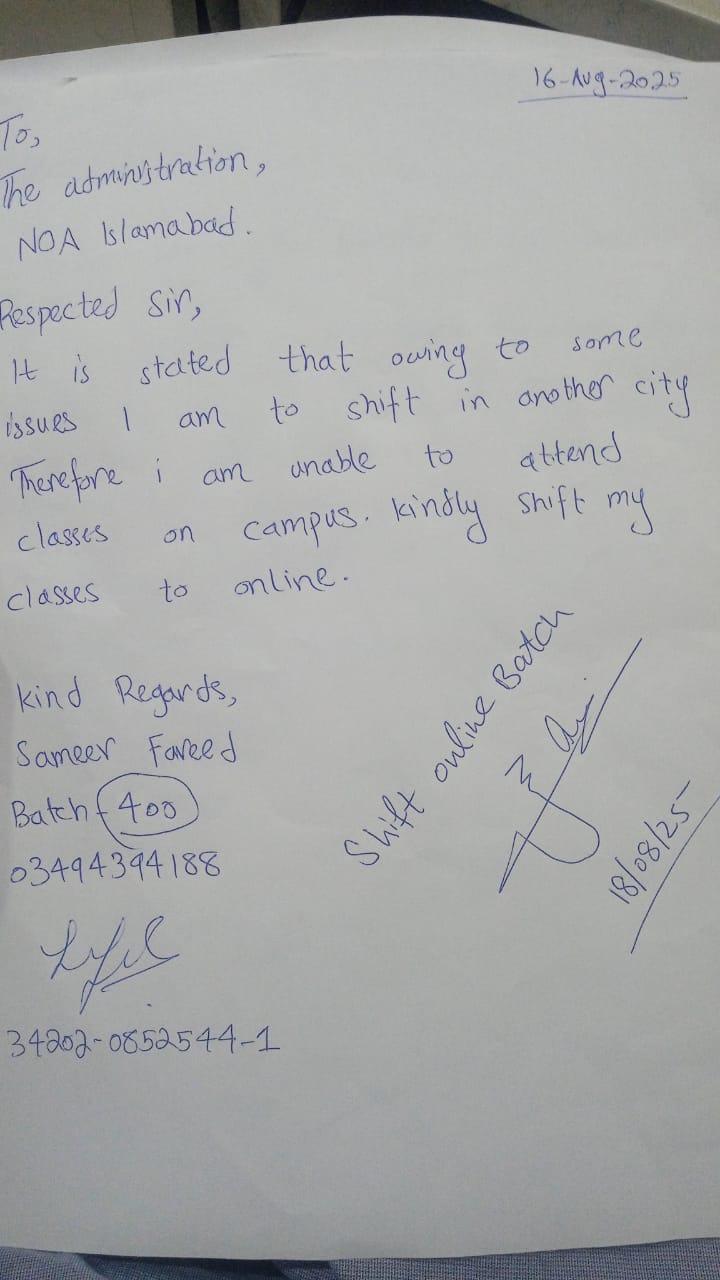 16-Aug-2025
To,
The administration,
NOA Islamabad.
Respected Sir,
It is stated that owing to some
issues I am to shift in another city
Therefore i am unable to attend
classes on campus. kindly shift my
classes to online.
kind Regards,
Sameer Fareed
Batch 400
03494394188
34202-0852544-1
Shift online Batch
18/08/25